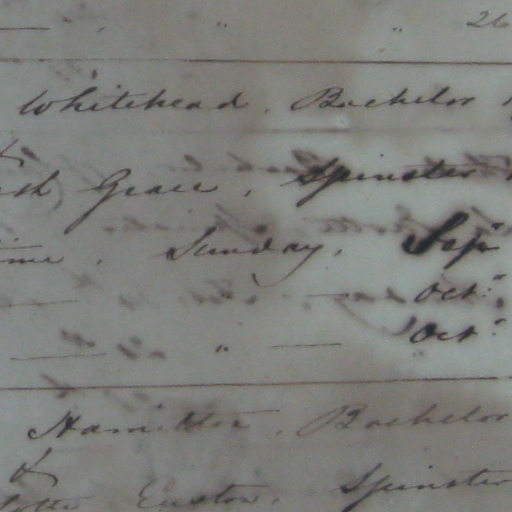 " " 26
Whitehead, Bachelor
&
Grace, Spinster
time, Sunday, Sepr
" Oct.
" Oct.
Hamilton, Bachelor
&
Euston, Spinster